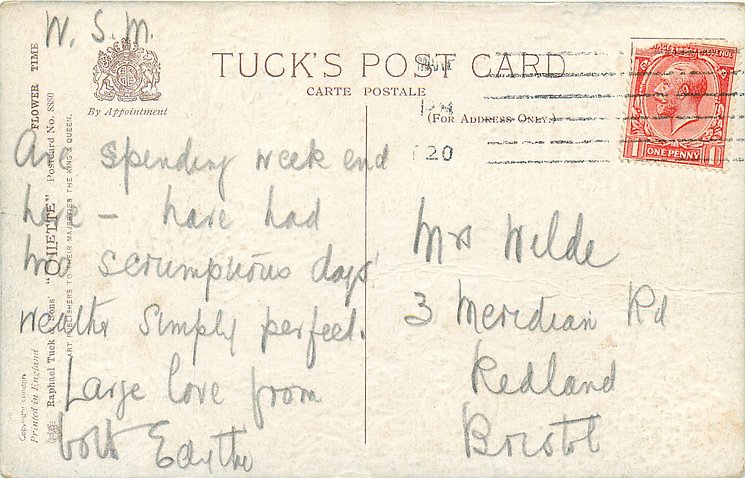 W. S. M.
TUCK'S POST CARD
CARTE POSTALE
(FOR ADDRESS ONLY.)
By Appointment
20
ONE PENNY
1 1
Am spending week end
here – have had
two scrumptious days'
weather simply perfect.
Large love from
both Edythe
Mrs Wilde
3 Meridian Rd
Redland
Bristol
Copyright London
Printed in England
Raphael Tuck & Sons' "OILETTE" Postcard No. 8880
FLOWER TIME
ART PUBLISHERS TO THEIR MAJESTIES THE KING & QUEEN.